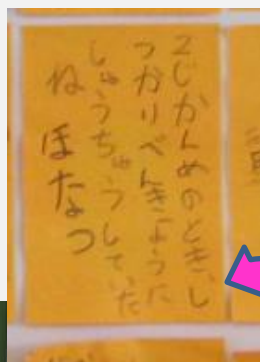 2じかんめのとき、し
っかりべんきょうに
しゅうちゅうしていた
ね ほなつ